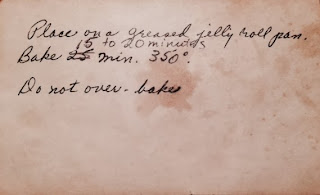 Place on a greased jelly roll pan.
15 to 20 minutes
Bake 25 min. 350°.
Do not over-bake